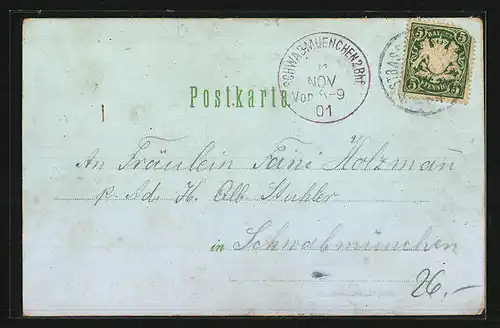 SCHWABMUENCHEN 2 Bhf
NOV
Vor 8-9
01
5 BAYERN 5
PFENNIG
Postkarte
An Fräulein Fani Holzmann
p. Ad. H. Alb. Stuhler
in Schwabmünchen
26.-